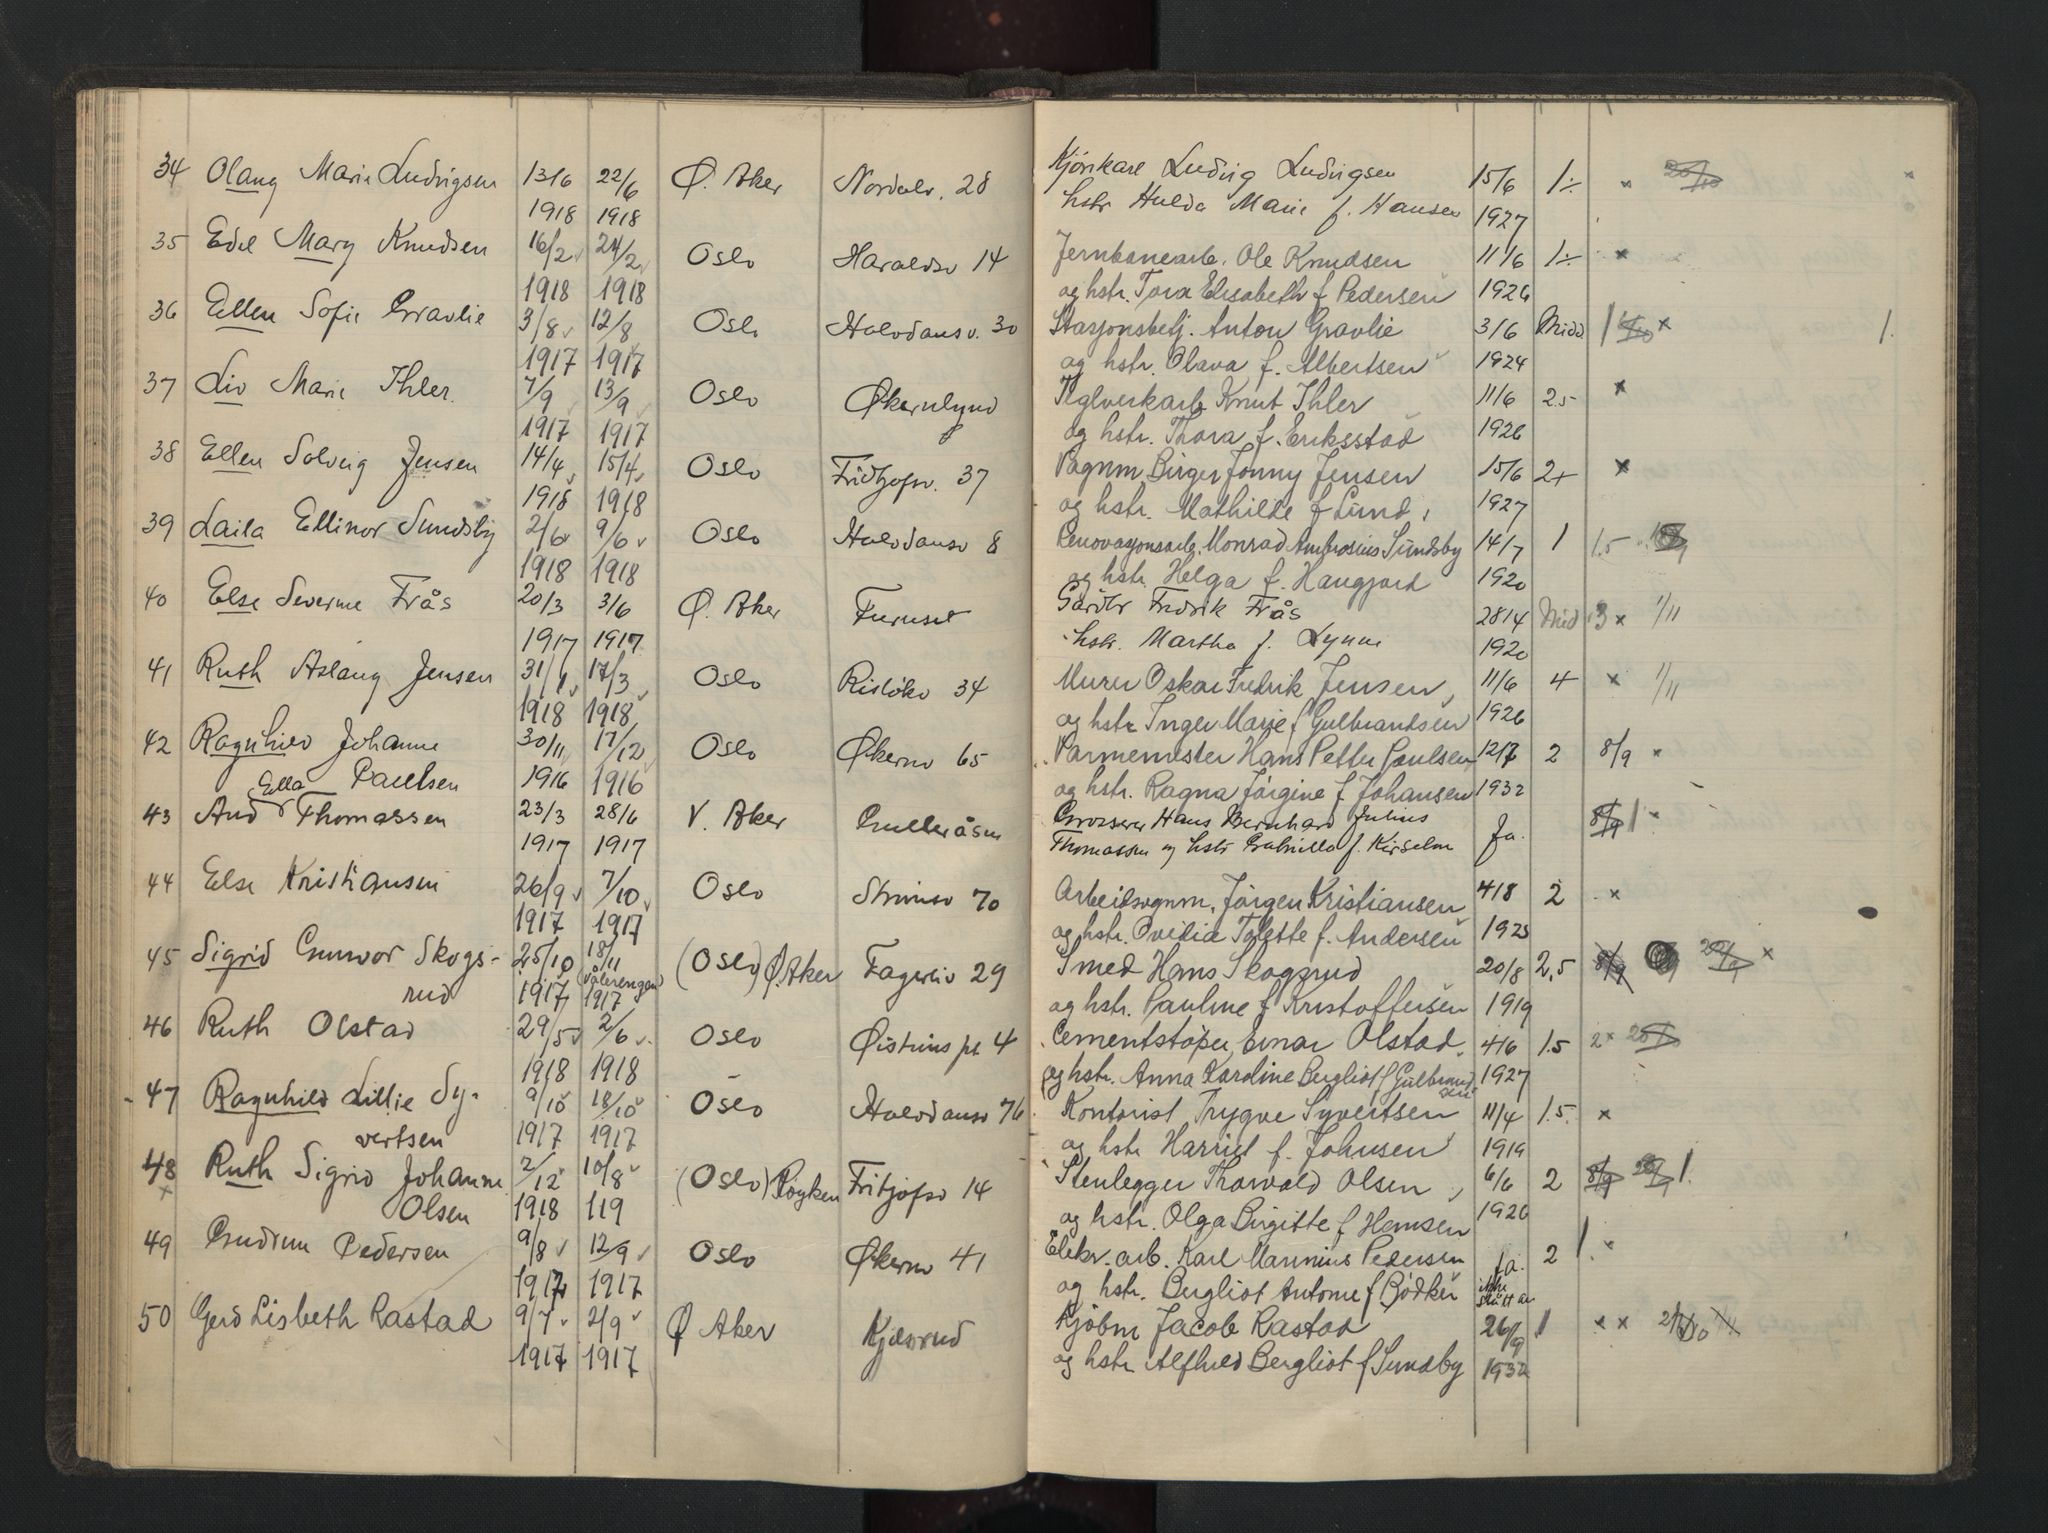 34 Olaug Marie Ludvigsen 13/6 22/6 Ø. Aker Nordalv. 28 Kjørekarl Ludvig Ludvigsen 15/6 1÷ ×
1918 1918 hstr Hulda Marie f. Hansen 1927
35 Edel Mary Knudsen 16/2 24/2 Oslo Haraldsv 14 Jernbanearb. Ole Knudsen 11/6 1÷ ×
1918 1918 og hstr. Tora Elisabeth f Pedersen 1926
36 Ellen Sofie Gravlie 3/8 12/8 Oslo Halvdansv. 30 Stasjonsbetj. Anton Gravlie 3/6 Midd 1 × 1.
1917 1917 og hstr. Olava f. Albertsen 1924
37 Liv Marie Ihler. 7/9 13/9 Oslo Økernlynd Teglverkarb Knut Ihler 11/6 2.5 ×
1917 1917 og hstr. Thora f. Eriksstad 1926
38 Ellen Solveig Jensen 14/4 15/4 Oslo Fridtjofsv. 37 Vognm. Birger Jonny Jensen 15/6 2+ ×
1918 1918 og hstr. Mathilde f Lund 1927
39 Laila Ellinor Sundsby 2/6 9/6 Oslo Halvdansv 8 Renovasjonsarb. Monrad Ambrosius Sundsby 14/7 1 1.5
1918 1918 og hstr. Helga f. Haugjord 1920
40 Else Severine Frås 20/3 3/6 Ø. Aker Furuset Gårdbr Fredrik Frås 28/4 Mid 3 × 1/11
1917 1917 hstr. Martha f. Lynne 1920
41 Ruth Aslaug Jensen 31/1 17/3 Oslo Risløkv 34 Murer Oskar Fredrik Jensen, 11/6 4 × 1/11
1918 1918 og hstr Inger Marie f Gulbrandsen 1926
42 Ragnhild Johanne 30/11 17/12 Oslo Økernv 65 Varmemester Hans Petter Paulsen 12/7 2 8/9 ×
Paulsen 1916 1916 og hstr. Ragna Jørgine f Johansen 1932
43 Aud Ella Thomassen 23/3 28/6 V. Aker Gulleråsen Grosserer Hans Bernhard Julius Ja. 8/9 1
1917 1917 Thomassen og hstr Gabriella f.
44 Else Kristiansen 26/9 7/10 Oslo Strømsv 70 Arbeidsognm. Jørgen Kristiansen 4/8 2 ×
1917 1917 og hstr. Ovidia Tolette f. Andersen 1925
45 Sigrid Gunvor Skogs- 25/10 18/11 (Oslo) Ø. Aker Fagerliv 29 Smed Hans Skogsrud 20/8 2.5 8/9 ×
rud 1917 (Vålerengen) 1917 og hstr. Pauline f Kristoffersen 1919
46 Ruth Olstad 29/5 2/6 Oslo Øisteins pl 4 Cementstøper Einar Olstad 4/6 1.5 2×
1918 1918 og hstr. Anna Karoline Bergliot f Gulbrandsen 1927
47 Ragnhild Lillie Sy- 9/10 18/10 Oslo Halvdansv 76 Kontorist Trygve Syvertsen 11/4 1.5 ×
vertsen 1917 1917 og hstr Harriet f. Johnsen 1919
48 Ruth Sigrid Johanne 2/12 10/8 (Oslo) Røyken Fritjofsv 14 Stenlegger Thorvald Olsen, 6/6 2 8/9 1.
× Olsen 1918 119 og hstr. Olga Birgitte f Hansen 1926
49 Gudrun Pedersen 9/8 12/9 Oslo Økernv 41 Elekr. arb. Karl Marinius Pedersen Ja. 2 1 ×
1917 1917 og hstr. Bergliot Antonie f Bjødker ikke
50 Gerd Lisbeth Rastad 9/7 2/9 Ø Aker Kjelsrud Kjøbm Jacob Rastad 26/9 1 × ×
1917 1917 og hstr Alfhild Bergliot f Sundby 1932